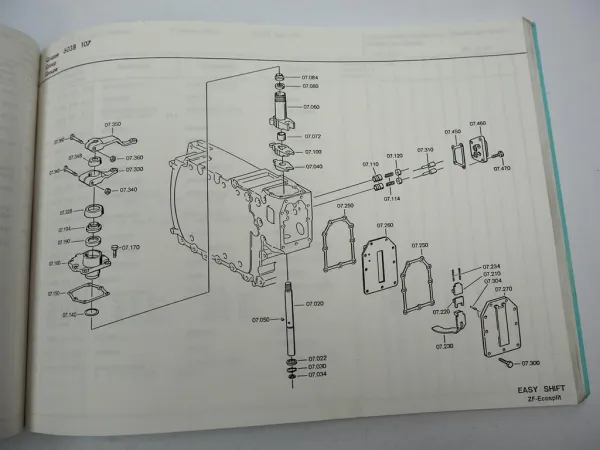 5038 107
07.084
07.080
07.060
07.072
07.100
07.040
07.350
07.348
07.360
07.330
07.340
07.170
07.140
07.110
07.120
07.310
07.450
07.460
07.470
07.114
07.250
07.260
07.250
07.234
07.210
07.304
07.270
07.220
07.230
07.300
07.020
07.050
07.022
07.030
07.034
EASY SHIFT
ZF-Ecosplit